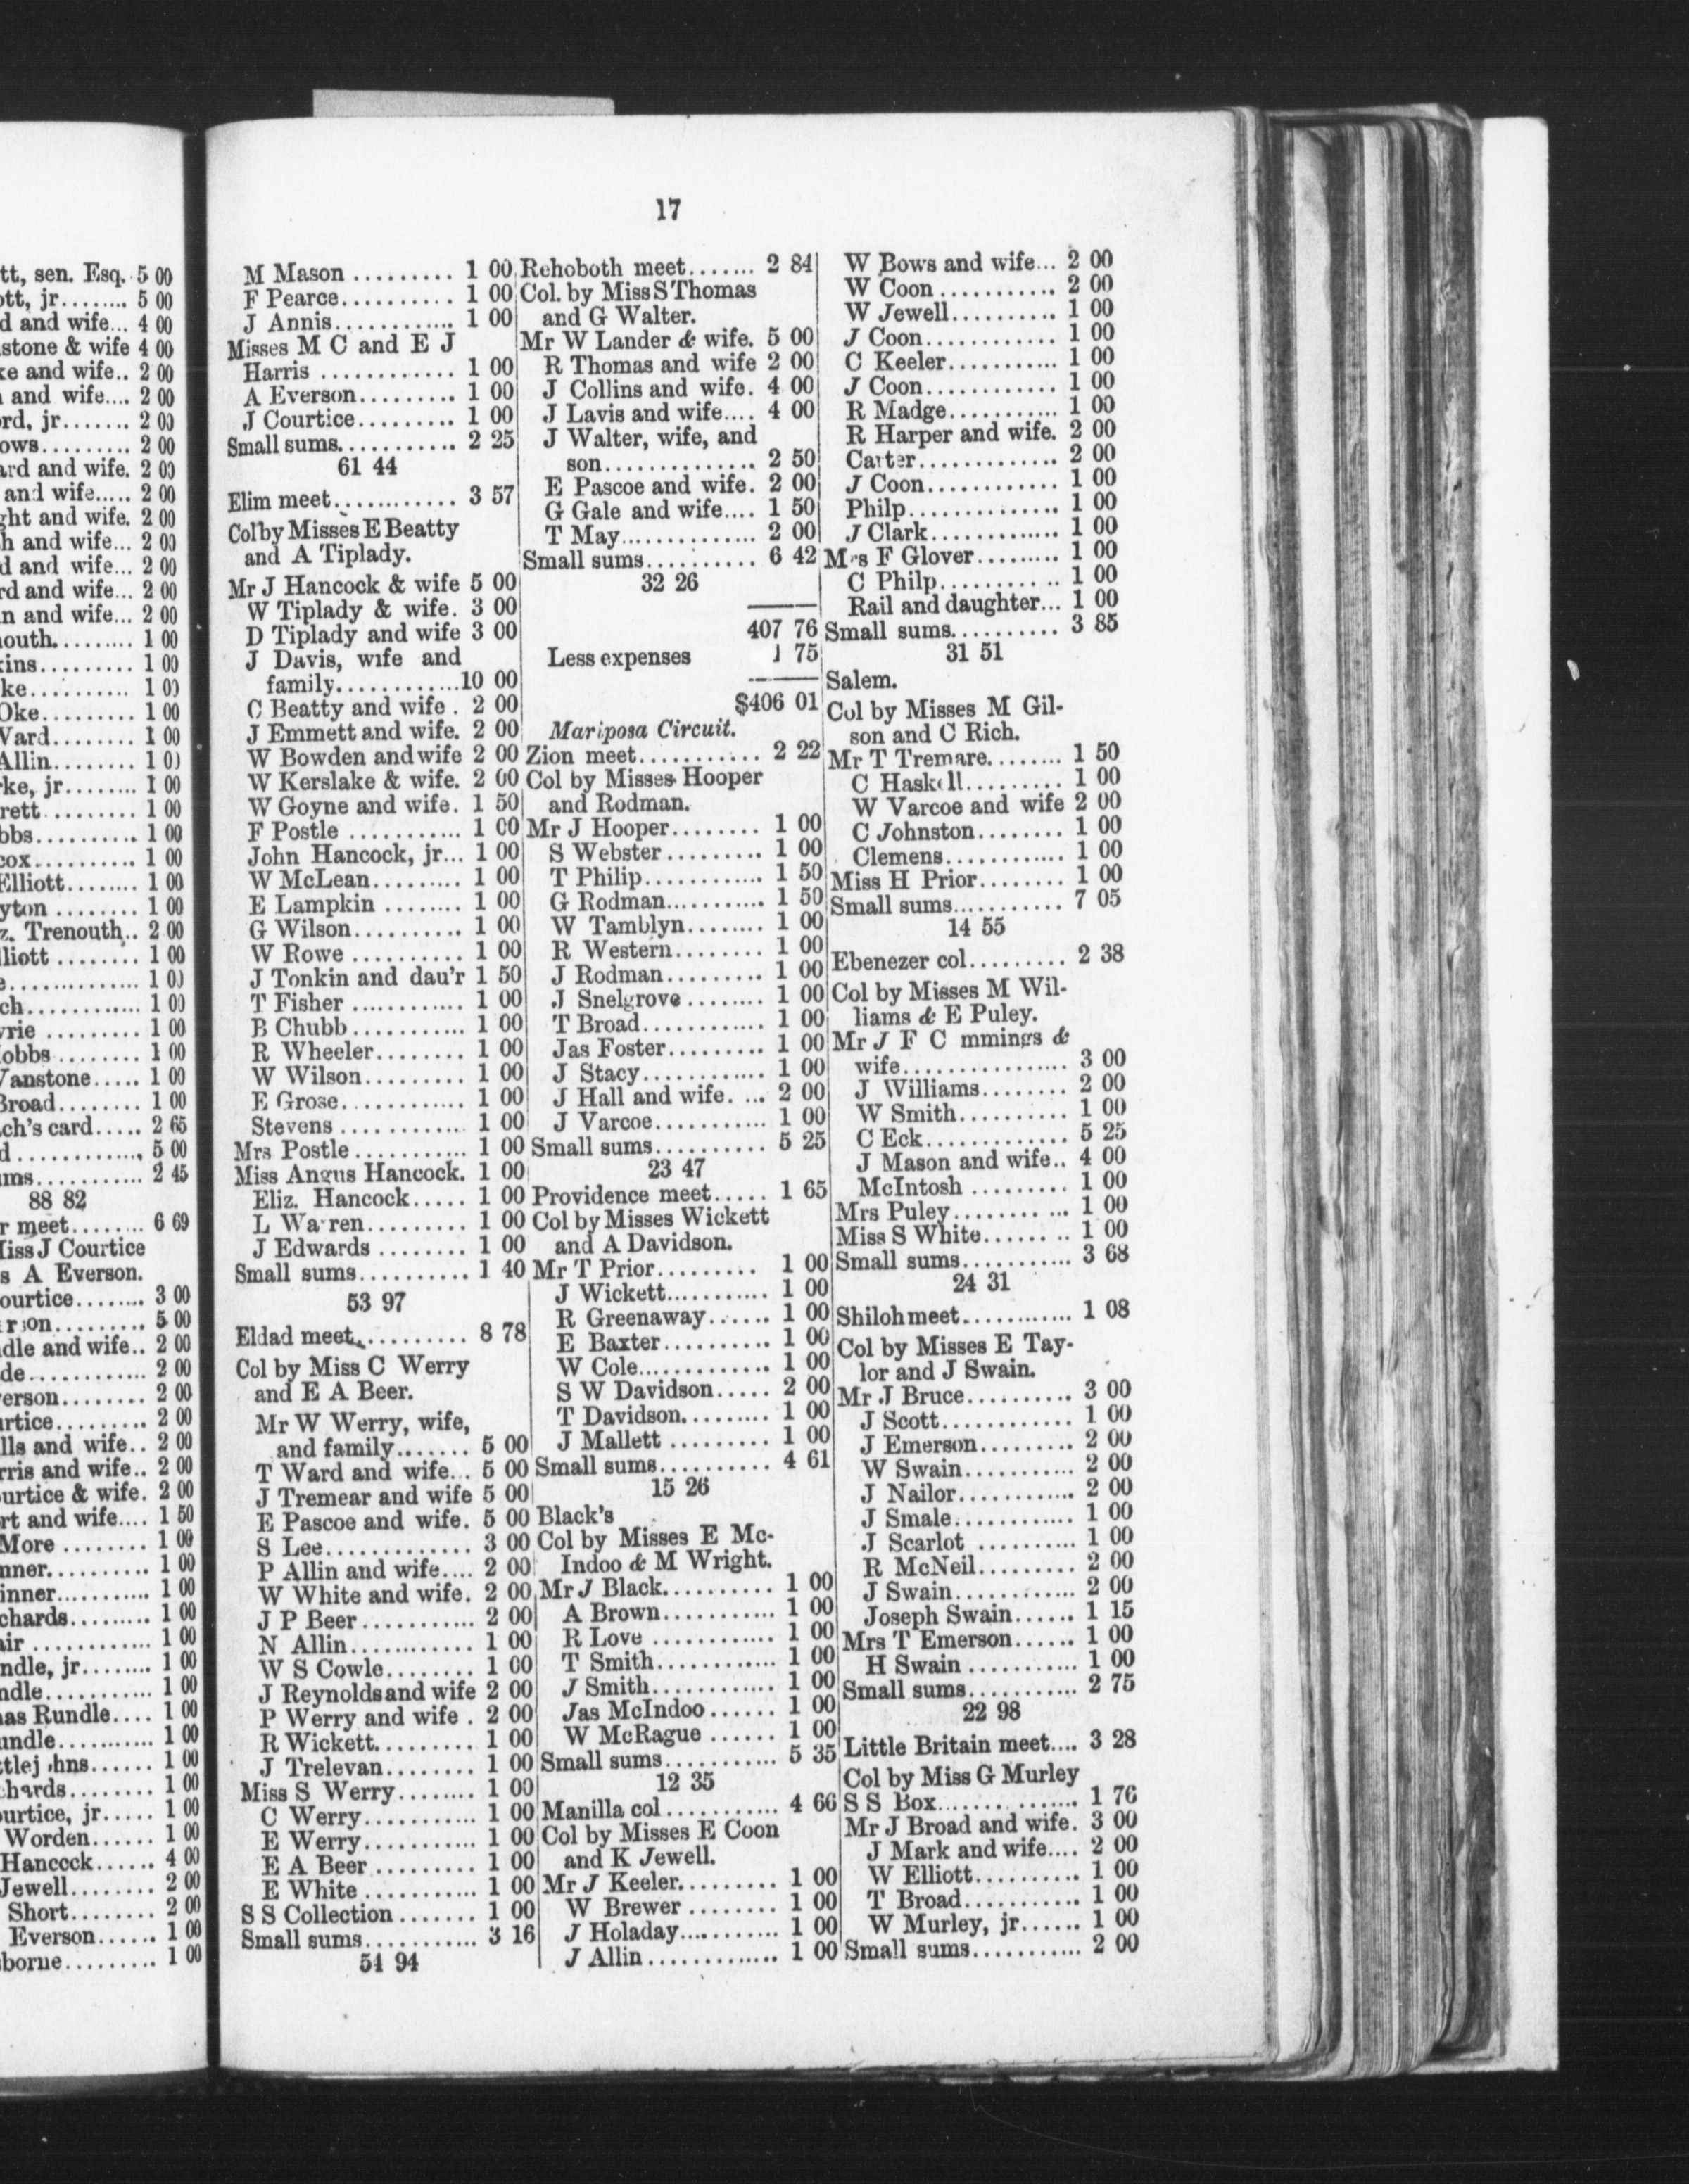 tt, sen. Esq. 5 00
ott, jr........ 5 00
d and wife... 4 00
stone & wife 4 00
ke and wife.. 2 00
and wife.... 2 00
rd, jr....... 2 00
ows......... 2 00
ard and wife. 2 00
and wife..... 2 00
ght and wife. 2 00
h and wife... 2 00
d and wife... 2 00
rd and wife... 2 00
n and wife... 2 00
outh......... 1 00
ins......... 1 00
ke.......... 1 00
Oke......... 1 00
Vard........ 1 00
Allin........ 1 00
rke, jr........ 1 00
rett......... 1 00
bbs.......... 1 00
cox.......... 1 00
Elliott........ 1 00
yton ........ 1 00
z. Trenouth.. 2 00
lliott ........ 1 00
e.............. 1 00
ch............ 1 00
rie ......... 1 00
obbs........ 1 00
Vanstone..... 1 00
Broad........ 1 00
ch's card..... 2 65
d............. 5 00
ms........... 2 45
88 82
r meet........ 6 69
Miss J Courtice
s A Everson.
ourtice........ 3 00
rson......... 5 00
dle and wife.. 2 00
de............ 2 00
erson........ 2 00
rtice......... 2 00
lls and wife.. 2 00
rris and wife.. 2 00
urtice & wife. 2 00
rt and wife.... 1 50
More ........ 1 00
nner.......... 1 00
inner.......... 1 00
chards......... 1 00
air ............ 1 00
ndle, jr........ 1 00
ndle........... 1 00
as Rundle.... 1 00
undle.......... 1 00
ttlej hns...... 1 00
chards........ 1 00
urtice, jr..... 1 00
Worden...... 1 00
Hancock...... 4 00
Jewell........ 2 00
Short........ 2 00
Everson...... 1 00
borne......... 1 00
17
M Mason ......... 1 00
F Pearce.......... 1 00
J Annis............ 1 00
Misses M C and E J
Harris ............ 1 00
A Everson......... 1 00
J Courtice......... 1 00
Small sums........... 2 25
61 44
Elim meet............ 3 57
Col by Misses E Beatty
and A Tiplady.
Mr J Hancock & wife 5 00
W Tiplady & wife. 3 00
D Tiplady and wife 3 00
J Davis, wife and
family............10 00
C Beatty and wife . 2 00
J Emmett and wife. 2 00
W Bowden and wife 2 00
W Kerslake & wife. 2 00
W Goyne and wife. 1 50
F Postle ........... 1 00
John Hancock, jr... 1 00
W McLean......... 1 00
E Lampkin ........ 1 00
G Wilson.......... 1 00
W Rowe .......... 1 00
J Tonkin and dau'r 1 50
T Fisher ........... 1 00
B Chubb........... 1 00
R Wheeler........ 1 00
W Wilson......... 1 00
E Grose............ 1 00
Stevens ............ 1 00
Mrs Postle........... 1 00
Miss Angus Hancock. 1 00
Eliz. Hancock..... 1 00
L Warren......... 1 00
J Edwards ........ 1 00
Small sums.......... 1 40
53 97
Eldad meet.......... 8 78
Col by Miss C Werry
and E A Beer.
Mr W Werry, wife,
and family....... 5 00
T Ward and wife... 5 00
J Tremear and wife 5 00
E Pascoe and wife. 5 00
S Lee............. 3 00
P Allin and wife.... 2 00
W White and wife. 2 00
J P Beer........... 2 00
N Allin............ 1 00
W S Cowle........ 1 00
J Reynolds and wife 2 00
P Werry and wife . 2 00
R Wickett......... 1 00
J Trelevan........ 1 00
Miss S Werry........ 1 00
C Werry........... 1 00
E Werry........... 1 00
E A Beer ......... 1 00
E White ........... 1 00
S S Collection ....... 1 00
Small sums........... 3 16
54 94
Rehoboth meet....... 2 84
Col. by Miss S Thomas
and G Walter.
Mr W Lander & wife. 5 00
R Thomas and wife 2 00
J Collins and wife. 4 00
J Lavis and wife.... 4 00
J Walter, wife, and
son.............. 2 50
E Pascoe and wife. 2 00
G Gale and wife.... 1 50
T May............. 2 00
Small sums.......... 6 42
32 26
407 76
Less expenses 1 75
$406 01
Mariposa Circuit.
Zion meet........... 2 22
Col by Misses Hooper
and Rodman.
Mr J Hooper........ 1 00
S Webster......... 1 00
T Philip............ 1 50
G Rodman.......... 1 50
W Tamblyn........ 1 00
R Western........ 1 00
J Rodman......... 1 00
J Snelgrove........ 1 00
T Broad............ 1 00
Jas Foster......... 1 00
J Stacy............ 1 00
J Hall and wife. ... 2 00
J Varcoe........... 1 00
Small sums.......... 5 25
23 47
Providence meet..... 1 65
Col by Misses Wickett
and A Davidson.
Mr T Prior......... 1 00
J Wickett........... 1 00
R Greenaway...... 1 00
E Baxter.......... 1 00
W Cole............ 1 00
S W Davidson..... 2 00
T Davidson......... 1 00
J Mallett ......... 1 00
Small sums.......... 4 61
15 26
Black's
Col by Misses E Mc-
Indoo & M Wright.
Mr J Black.......... 1 00
A Brown........... 1 00
R Love ............ 1 00
T Smith............ 1 00
J Smith............ 1 00
Jas McIndoo...... 1 00
W McRague ...... 1 00
Small sums........... 5 35
12 35
Manilla col........... 4 66
Col by Misses E Coon
and K Jewell.
Mr J Keeler......... 1 00
W Brewer ........ 1 00
J Holaday.......... 1 00
J Allin............. 1 00
W Bows and wife... 2 00
W Coon........... 2 00
W Jewell.......... 1 00
J Coon............ 1 00
C Keeler........... 1 00
J Coon............ 1 00
R Madge........... 1 00
R Harper and wife. 2 00
Carter............. 2 00
J Coon............ 1 00
Philp.............. 1 00
J Clark............ 1 00
Mrs F Glover......... 1 00
C Philp............ 1 00
Rail and daughter... 1 00
Small sums.......... 3 85
31 51
Salem.
Col by Misses M Gil-
son and C Rich.
Mr T Tremare........ 1 50
C Haskell......... 1 00
W Varcoe and wife 2 00
C Johnston........ 1 00
Clemens............ 1 00
Miss H Prior........ 1 00
Small sums........... 7 05
14 55
Ebenezer col......... 2 38
Col by Misses M Wil-
liams & E Puley.
Mr J F C mmings &
wife................ 3 00
J Williams........ 2 00
W Smith.......... 1 00
C Eck............. 5 25
J Mason and wife.. 4 00
McIntosh ......... 1 00
Mrs Puley............ 1 00
Miss S White......... 1 00
Small sums........... 3 68
24 31
Shiloh meet............ 1 08
Col by Misses E Tay-
lor and J Swain.
Mr J Bruce.......... 3 00
J Scott............ 1 00
J Emerson......... 2 00
W Swain........... 2 00
J Nailor............ 2 00
J Smale............ 1 00
J Scarlot .......... 1 00
R McNeil......... 2 00
J Swain............ 2 00
Joseph Swain...... 1 15
Mrs T Emerson...... 1 00
H Swain ........... 1 00
Small sums........... 2 75
22 98
Little Britain meet.... 3 28
Col by Miss G Murley
S S Box.............. 1 76
Mr J Broad and wife. 3 00
J Mark and wife.... 2 00
W Elliott.......... 1 00
T Broad............ 1 00
W Murley, jr...... 1 00
Small sums........... 2 00